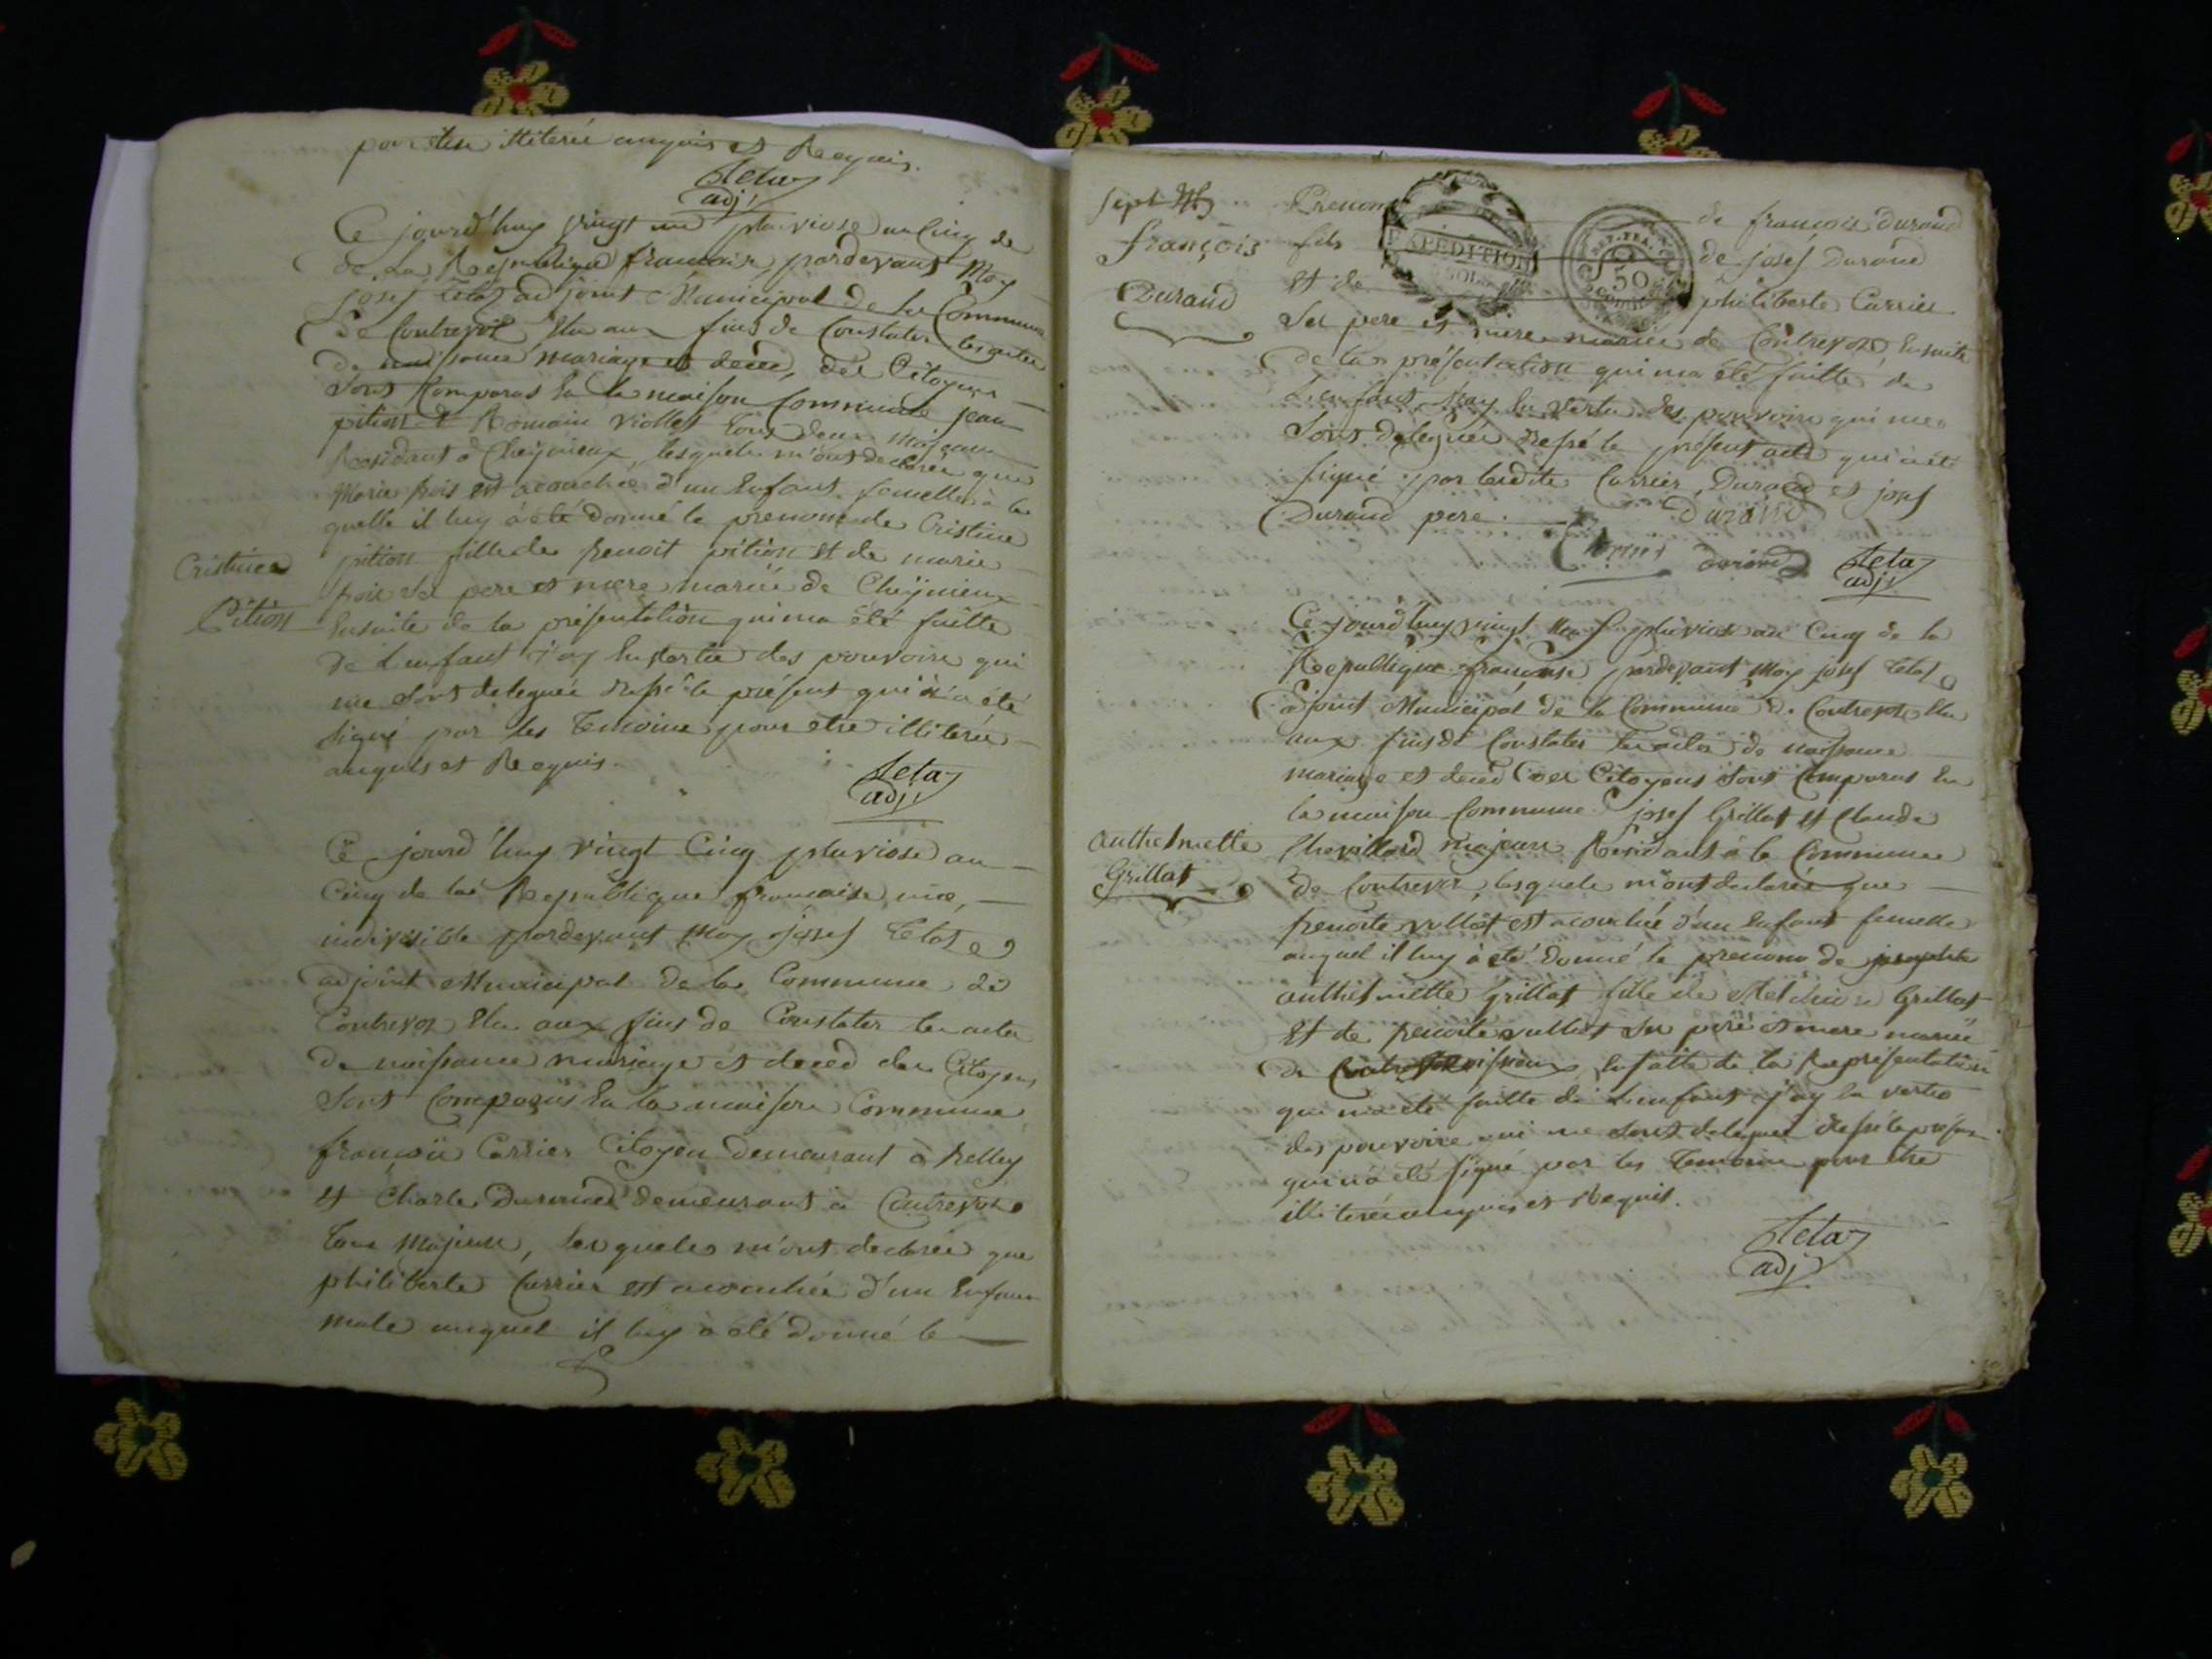 pour etre illiterée enquis et Requis.
Tetaz
adj.
Ce jourd'huy vingt un pluviose an Cinq de
de La Republique francaise, pardevant Moy
josef Tetaz adjoint Municipal de la Commune
de Contrevoz Elu aux fins de Constater les actes
de naissance mariage et deced, des Citoyens
Sont Comparus En la maison Commune jean
pition et Romain viollet tous deux Majeurs
Residant à Cheÿnieux, lesquels m'ont declarée que
Marie frois est acouchée d'un Enfant femelle à la
quelle il luy à eté donné le prenom de Cristine
Cristine
Pition
pition fille de benoit pition et de marie
frois Ses pere et mere mariée de Cheÿnieux
Ensuite de la présentation qui ma été faitte
de L'enfant j'ay En vertu des pouvoirs qui
me sont deleguée dressé le présent qui n'a été
signé par les Temoins pour etre illiterée
anquis et Requis.
Tetaz
adj.
Ce jourd'huy vingt Cinq pluviose an
Cinq de la Republique francaise, une,
indivisible pardevant Moy josef Tetaz
adjoint Municipal de la Commune de
Contrevoz Elu aux fins de Constater les actes
de naissance mariage et deced des Citoyens
Sont Comparus En la maison Commune
françois Carrier Citoyen demeurant à belley
et Charle Durand demeurant à Contrevoz
tous Majeurs, lesquels m'ont declarée que
philiberte Carrier est acouchée d'un Enfant
male auquel il luy à été donné le
Sept
François
Durand
Prenom de françois Durand
fils de josef Durand
Et de philiberte Carrier
EXPÉDITION
REP. FRA.
50
Ses pere et mere mariée de Contrevoz Ensuite
de la présentation qui ma été faitte de
L'enfant j'ay En vertu des pouvoirs qui me
Sont deleguée dressé le présent acte qui a été
signé par lesdits Carrier, Durand et josef
Durand pere.
Durand
Carrier durand Tetaz
adj.
Ce jourd'huy vingt pluviose an Cinq de la
Republique française pardevant Moy josef Tetaz
adjoint Municipal de la Commune de Contrevoz Elu
aux fins de Constater les actes de naissance
mariage et deced des Citoyens Sont Comparus En
la maison Commune josef Grillat et Claude
Anthelmette
Grillat
Chevillard majeurs Résidants à la Commune
de Contrevoz, lesquels m'ont declarée que
benoite vullet est acouchée d'un Enfant femelle
auquel il luy à eté donné le prenom de
anthelmette Grillat fille de Melchior Grillat
Et de benoite vullet Ses pere et mere mariée
de Ensuitte de la Representation
qui ma été faitte de L'enfant j'ay En vertu
des pouvoirs qui me Sont deleguée dressé le présent
qui n'a eté signé par les Temoins pour être
illiterée enquis et Requis.
Tetaz
adj.